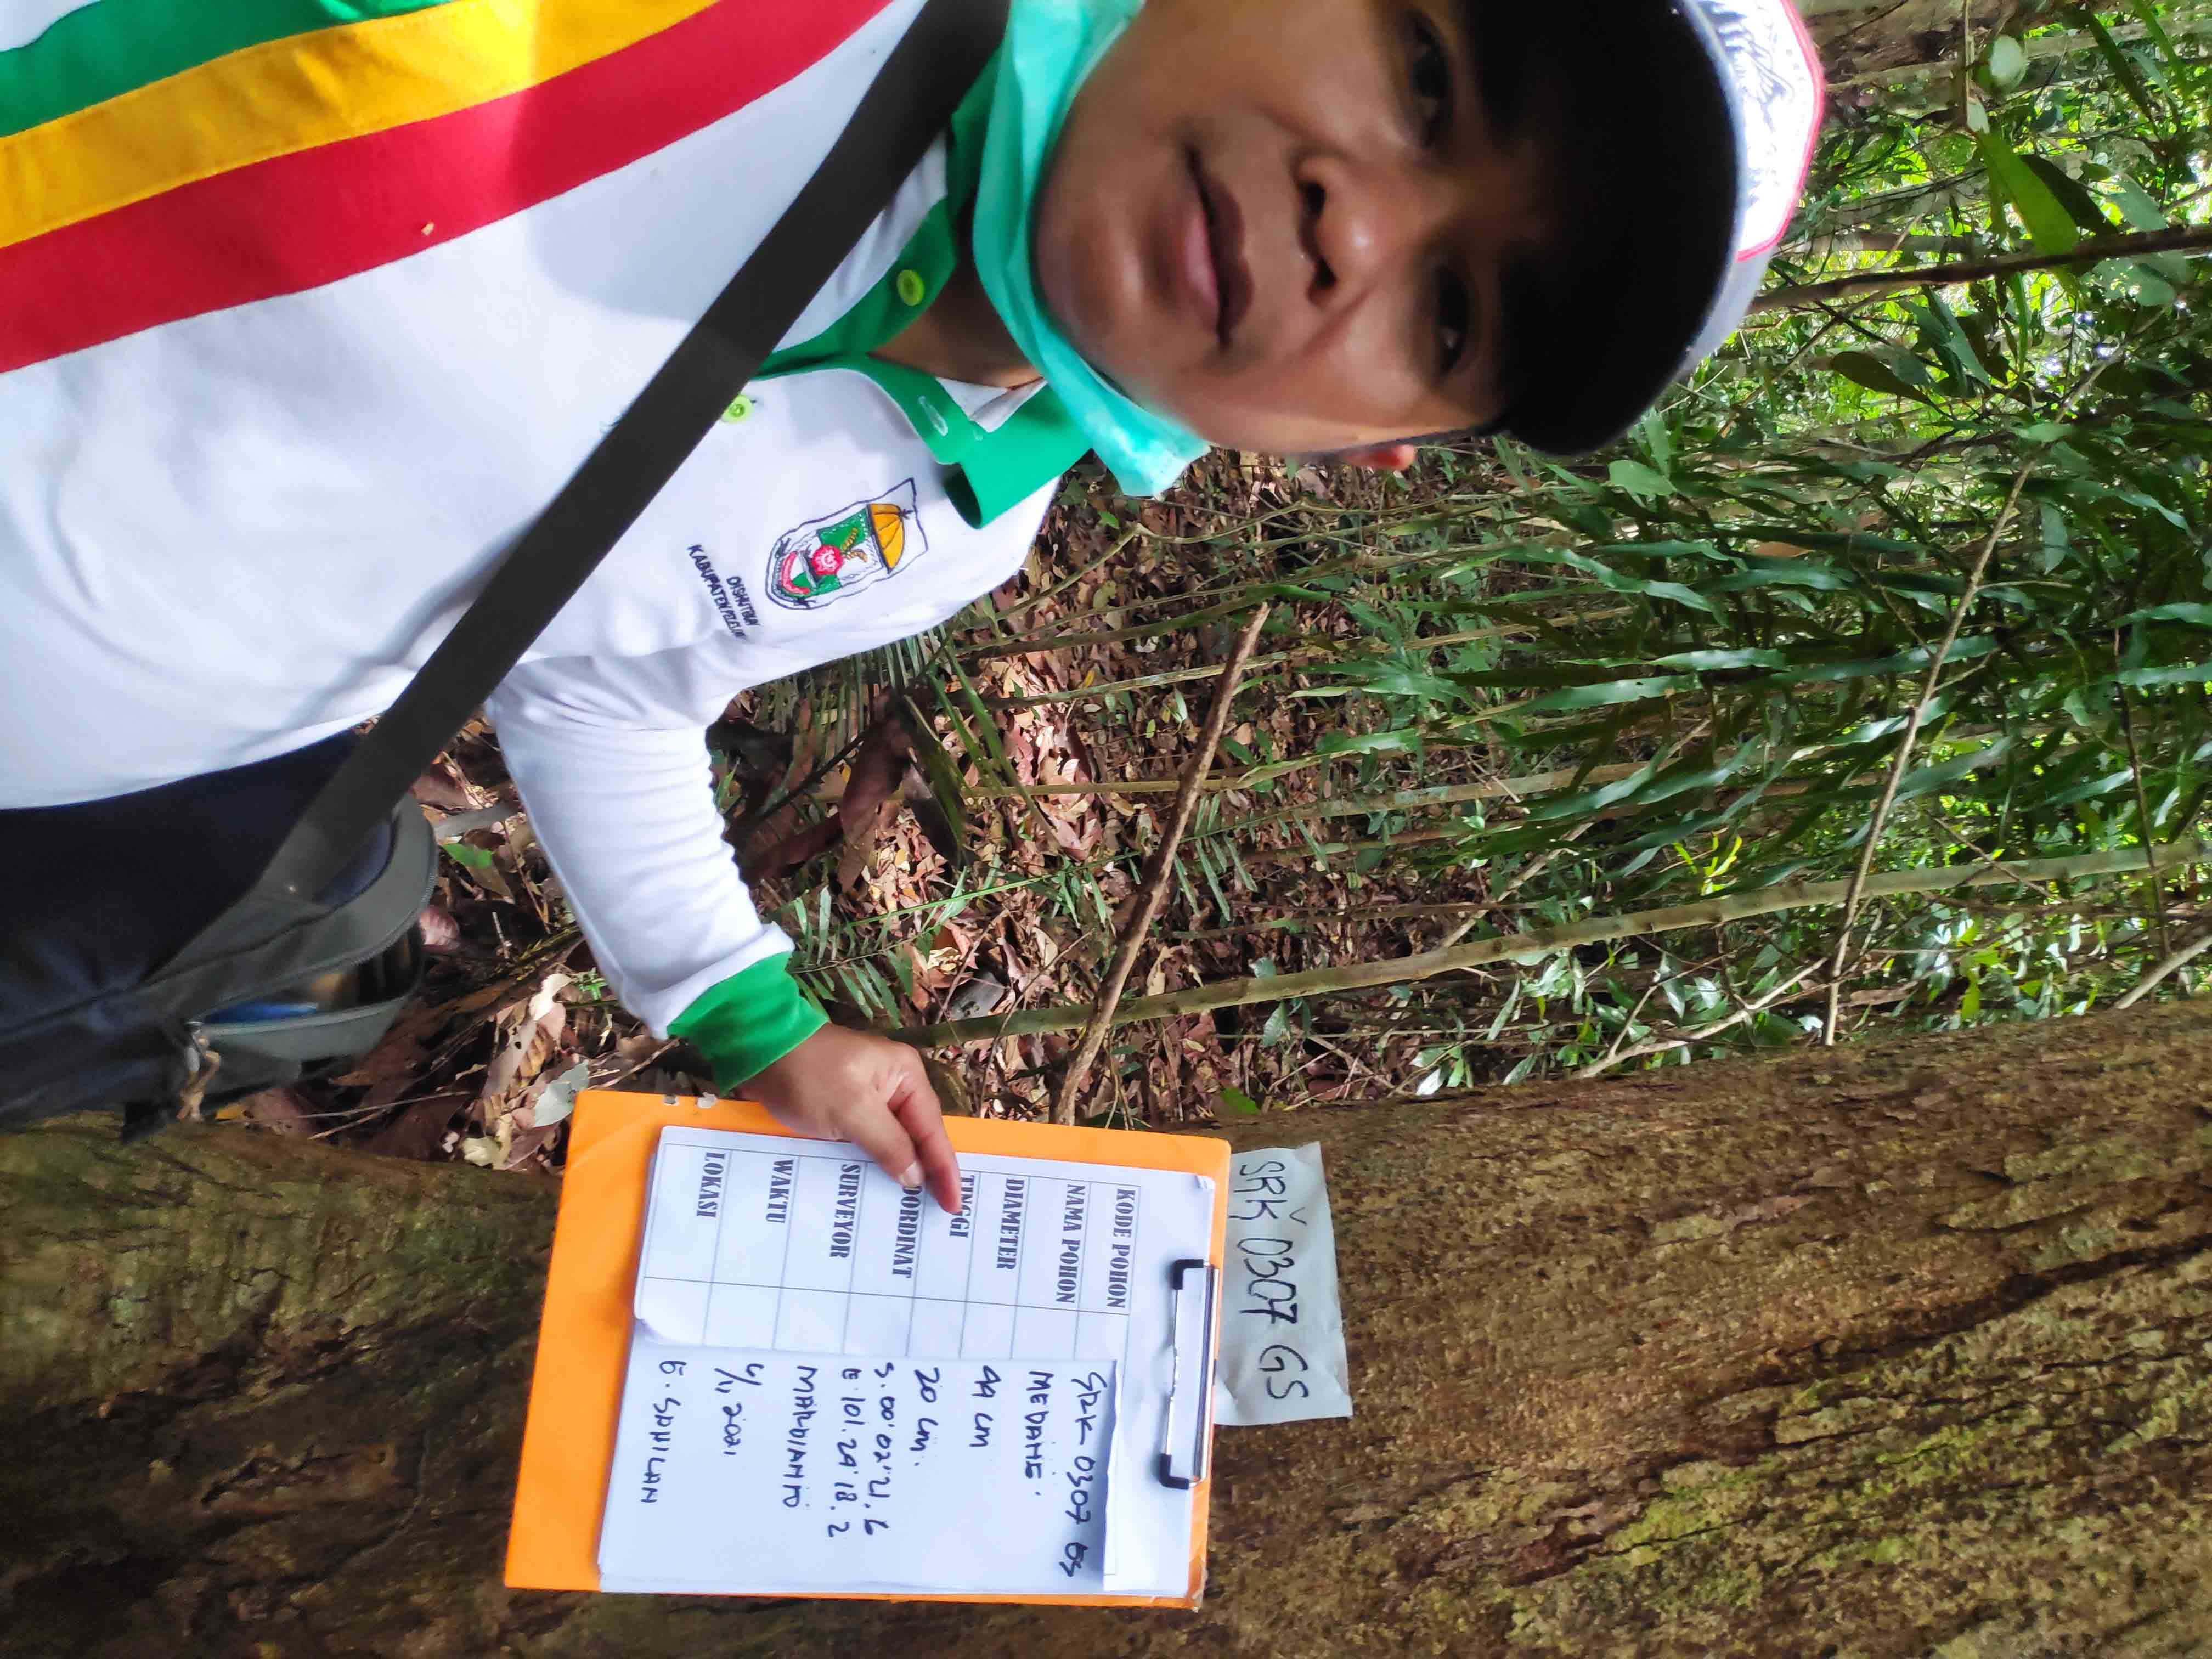 DISHUTBUN
KABUPATEN PELELAWAN
SRK 0307 GS
KODE POHON SRK 0307 GS
NAMA POHON MEDANG
DIAMETER 44 cm
TINGGI 20 cm
KOORDINAT S. 00' 02' 21,6
E. 101. 29' 18.2
SURVEYOR MARDIANTO
WAKTU 4/11 2021
LOKASI G. SAHILAN